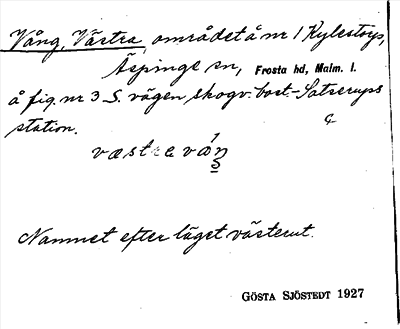 Vång, Västra, området å nr 1 Kylestorp,
Äspinge sn, Frosta hd, Malm. l.
å fig. nr 3 S. vägen skogv. bost.-Satserups
station.
væstra våŋ
Namnet efter läget västerut.
GÖSTA SJÖSTEDT 1927